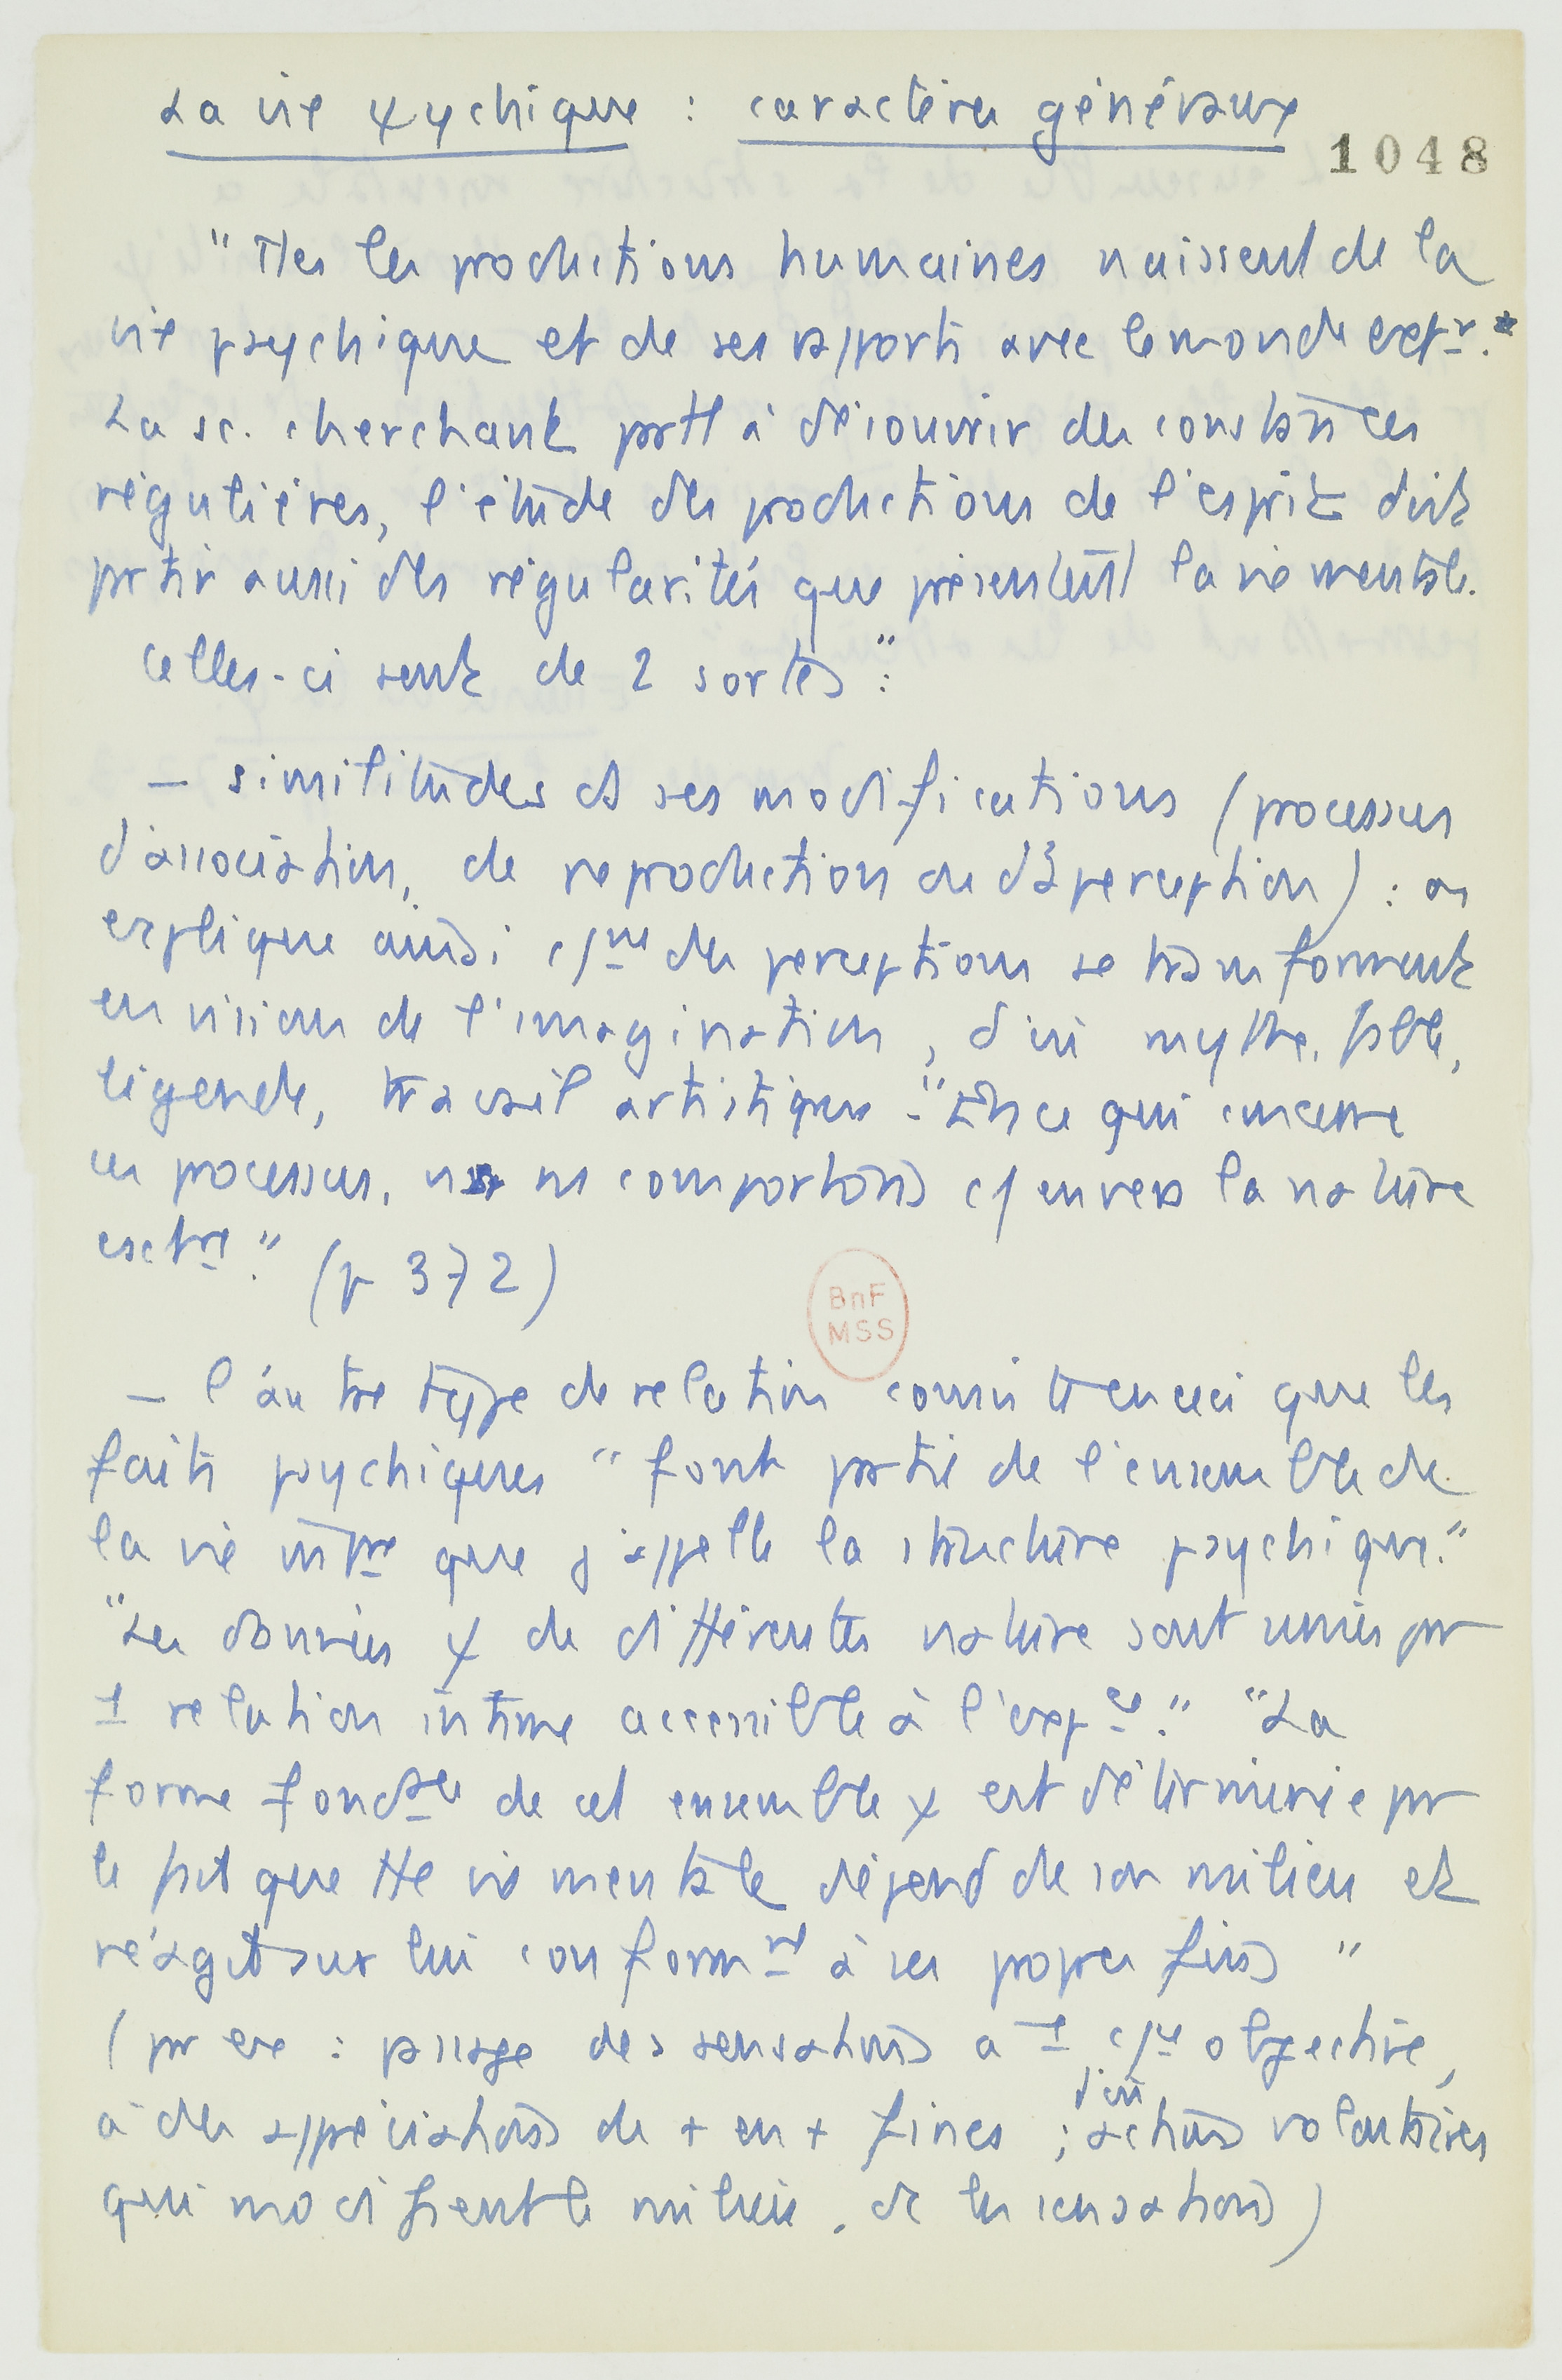 La vie ψychique : caractères généraux
1048
"Ttes les productions humaines naissent de la
vie psychique et de ses rapports avec le monde extr.
La sc. cherchant prtt à découvrir des constances
régulières, l'étude des productions de l'esprit doit
prtir aussi des régularités que présentent la vie mentale.
Celles-ci sont de 2 sortes":
– similitudes ds ses modifications (processus
d'association, de reproduction ou d'aperception) : on
explique ainsi c/me des perceptions se transforment
en vision de l'imagination, d'où mythe, fable,
légende, travail artistique. "En ce qui concerne
ces processus, ns ns comportons c/ envers la nature
extre." (p 372)
BnF
MSS
– l'autre type de relation consiste en ceci que les
faits psychiques "font partie de l'ensemble de
la vie que j'appelle la structure psychique."
"Les données ψ de différentes nature sont unies pr
1 relation intime accessible à l'expce." "La
forme fondale de cet ensemble ψ est déterminée pr
le fait que tte vie mentale dépend de son milieu et
réagit sur lui conformnt à ses propres fins"
(pr ex : passage des sensations a 1 objective,
à des appréciations de + en + fines ; d'où actions volontaires
qui modifient le milieu, ds les sensations)